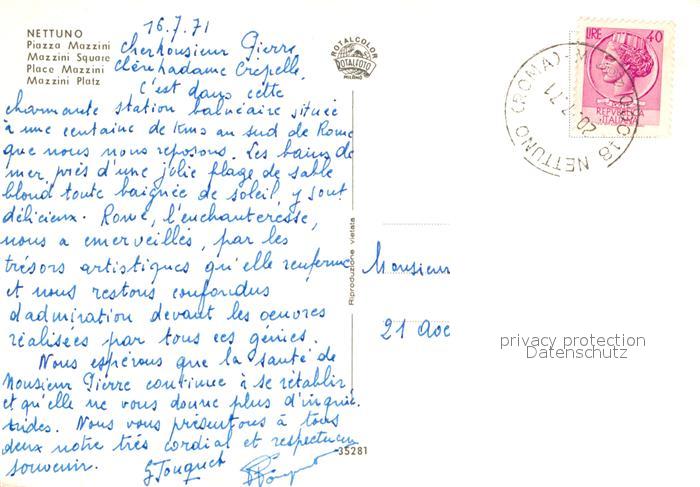 NETTUNO
Piazza Mazzini
Mazzini Square
Place Mazzini
Mazzini Platz
16.7.71
Cher Monsieur Pierre
Chère Madame Crepelle.
C'est dans cette
charmante station balnéaire située
à une centaine de Kms au sud de Rome
que nous nous reposons. Les bains de
mer près d'une jolie plage de sable
blond toute baignée de soleil, y sont
délicieux. Rome, l'enchanteresse,
nous a emerveillés, par les
trésors artistiques qu'elle renferme
et nous restons confondus
d'admiration devant les oeuvres
réalisées par tous ces génies.
Nous espérons que la santé de
Monsieur Pierre continue à se rétablir
et qu'elle ne vous donne plus d'inquié-
tudes. Nous vous présentons à tous
deux notre très cordial et respectueux
souvenir.
G Touquet
ROTALCOLOR
ROTALFOTO
MILANO
Riproduzione vietata
35281
LIRE 40
REPVBBLICA
ITALIANA
NETTUNO (ROMA)
20.7.71
Monsieur
21 Ave
privacy protection
Datenschutz